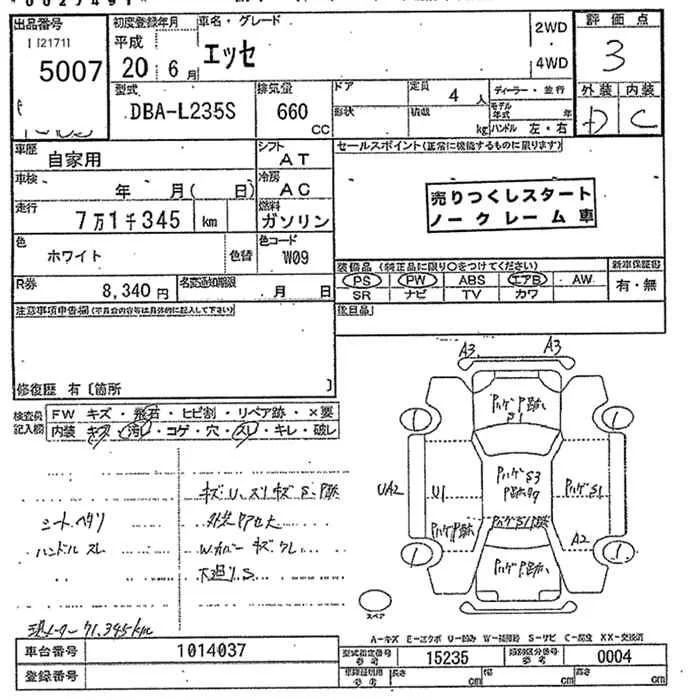 出品番号
[2171]
5007
初度登録年月
平成
20 年 6 月
車名・グレード
エッセ
2WD
4WD
評価点
3
外装 内装
D C
型式
DBA-L235S
排気量
660 CC
ドア
形状
定員 4 人
積載 kg
ディーラー・並行
モデル年式 年
ハンドル 左・右
車歴
自家用
シフト
AT
セールスポイント(正常に機能するものに限ります)
車検
年 月( 日)
冷房
AC
走行
7万1千345 km
燃料
ガソリン
売りつくしスタート
ノークレーム車
色
ホワイト
色替
色コード
W09
R券
8,340円
名変通知期限
月 日
装備品(純正品に限り○をつけてください)
新車保証書
PS PW ABS エアB AW
有・無
SR ナビ TV カワ
後日品
注意事項申告欄(不具合内容等は具体的に記入して下さい)
修復歴 有〔箇所 〕
検査員記入欄
FW キズ・飛石・ヒビ割・リペア跡・×要
内装 キズ・汚レ・コゲ・穴・スレ・キレ・破レ
キズU.スリキズS.P跡
シートヘタリ
外装Pアセ大
ハンドルスレ
Wカバーキズワレ
下廻りS
現メーター 71,345km
A3 A3
PハゲP跡
S1
1 1
UA2
U1
PハゲS3
PハゲS1
PハゲP跡
PハゲS1P跡
A2
1 1
PハゲP跡
スペア
A-キズ E-エクボ U-凹み W-補修跡 S-サビ C-腐食 XX-交換済
車台番号
1014037
型式指定番号
参考
15235
類別区分番号
参考
0004
登録番号
車庫証明用
参考
長さ cm
幅 cm
高さ cm